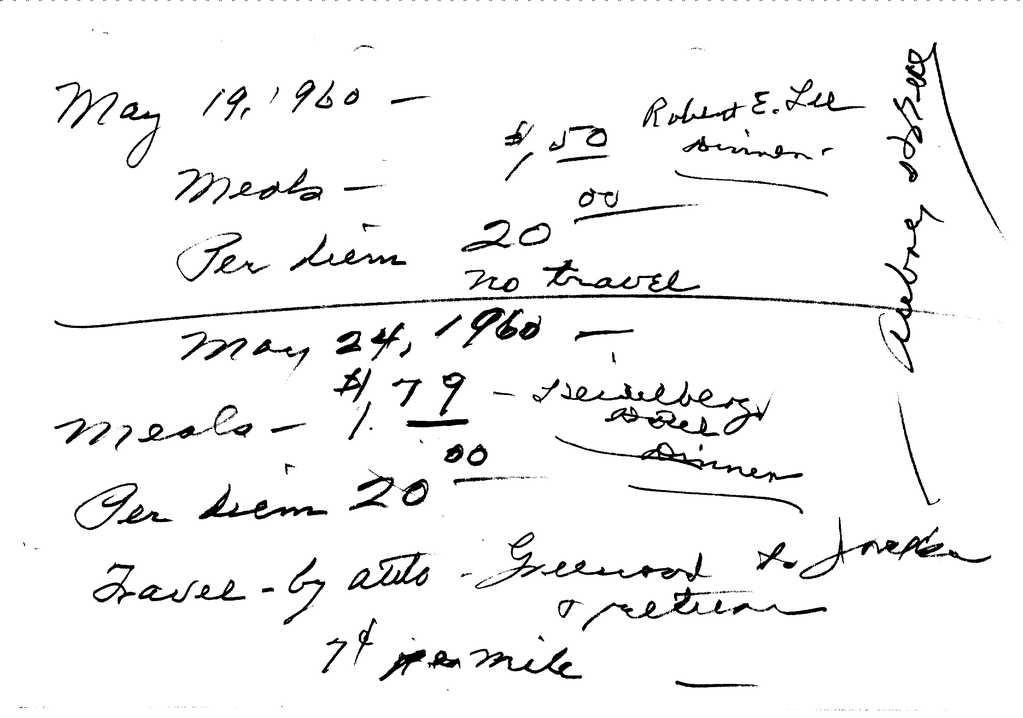 May 19, 1960 —
Robert E. Lee
Dinner
Meals — $1.50
Per diem 20 00
no travel
May 24, 1960 —
Meals — $1.79 — Heidelberg
Hotel
Dinner
Per diem 20 00
Travel - by auto - Greenwood to
& return
7¢ per mile